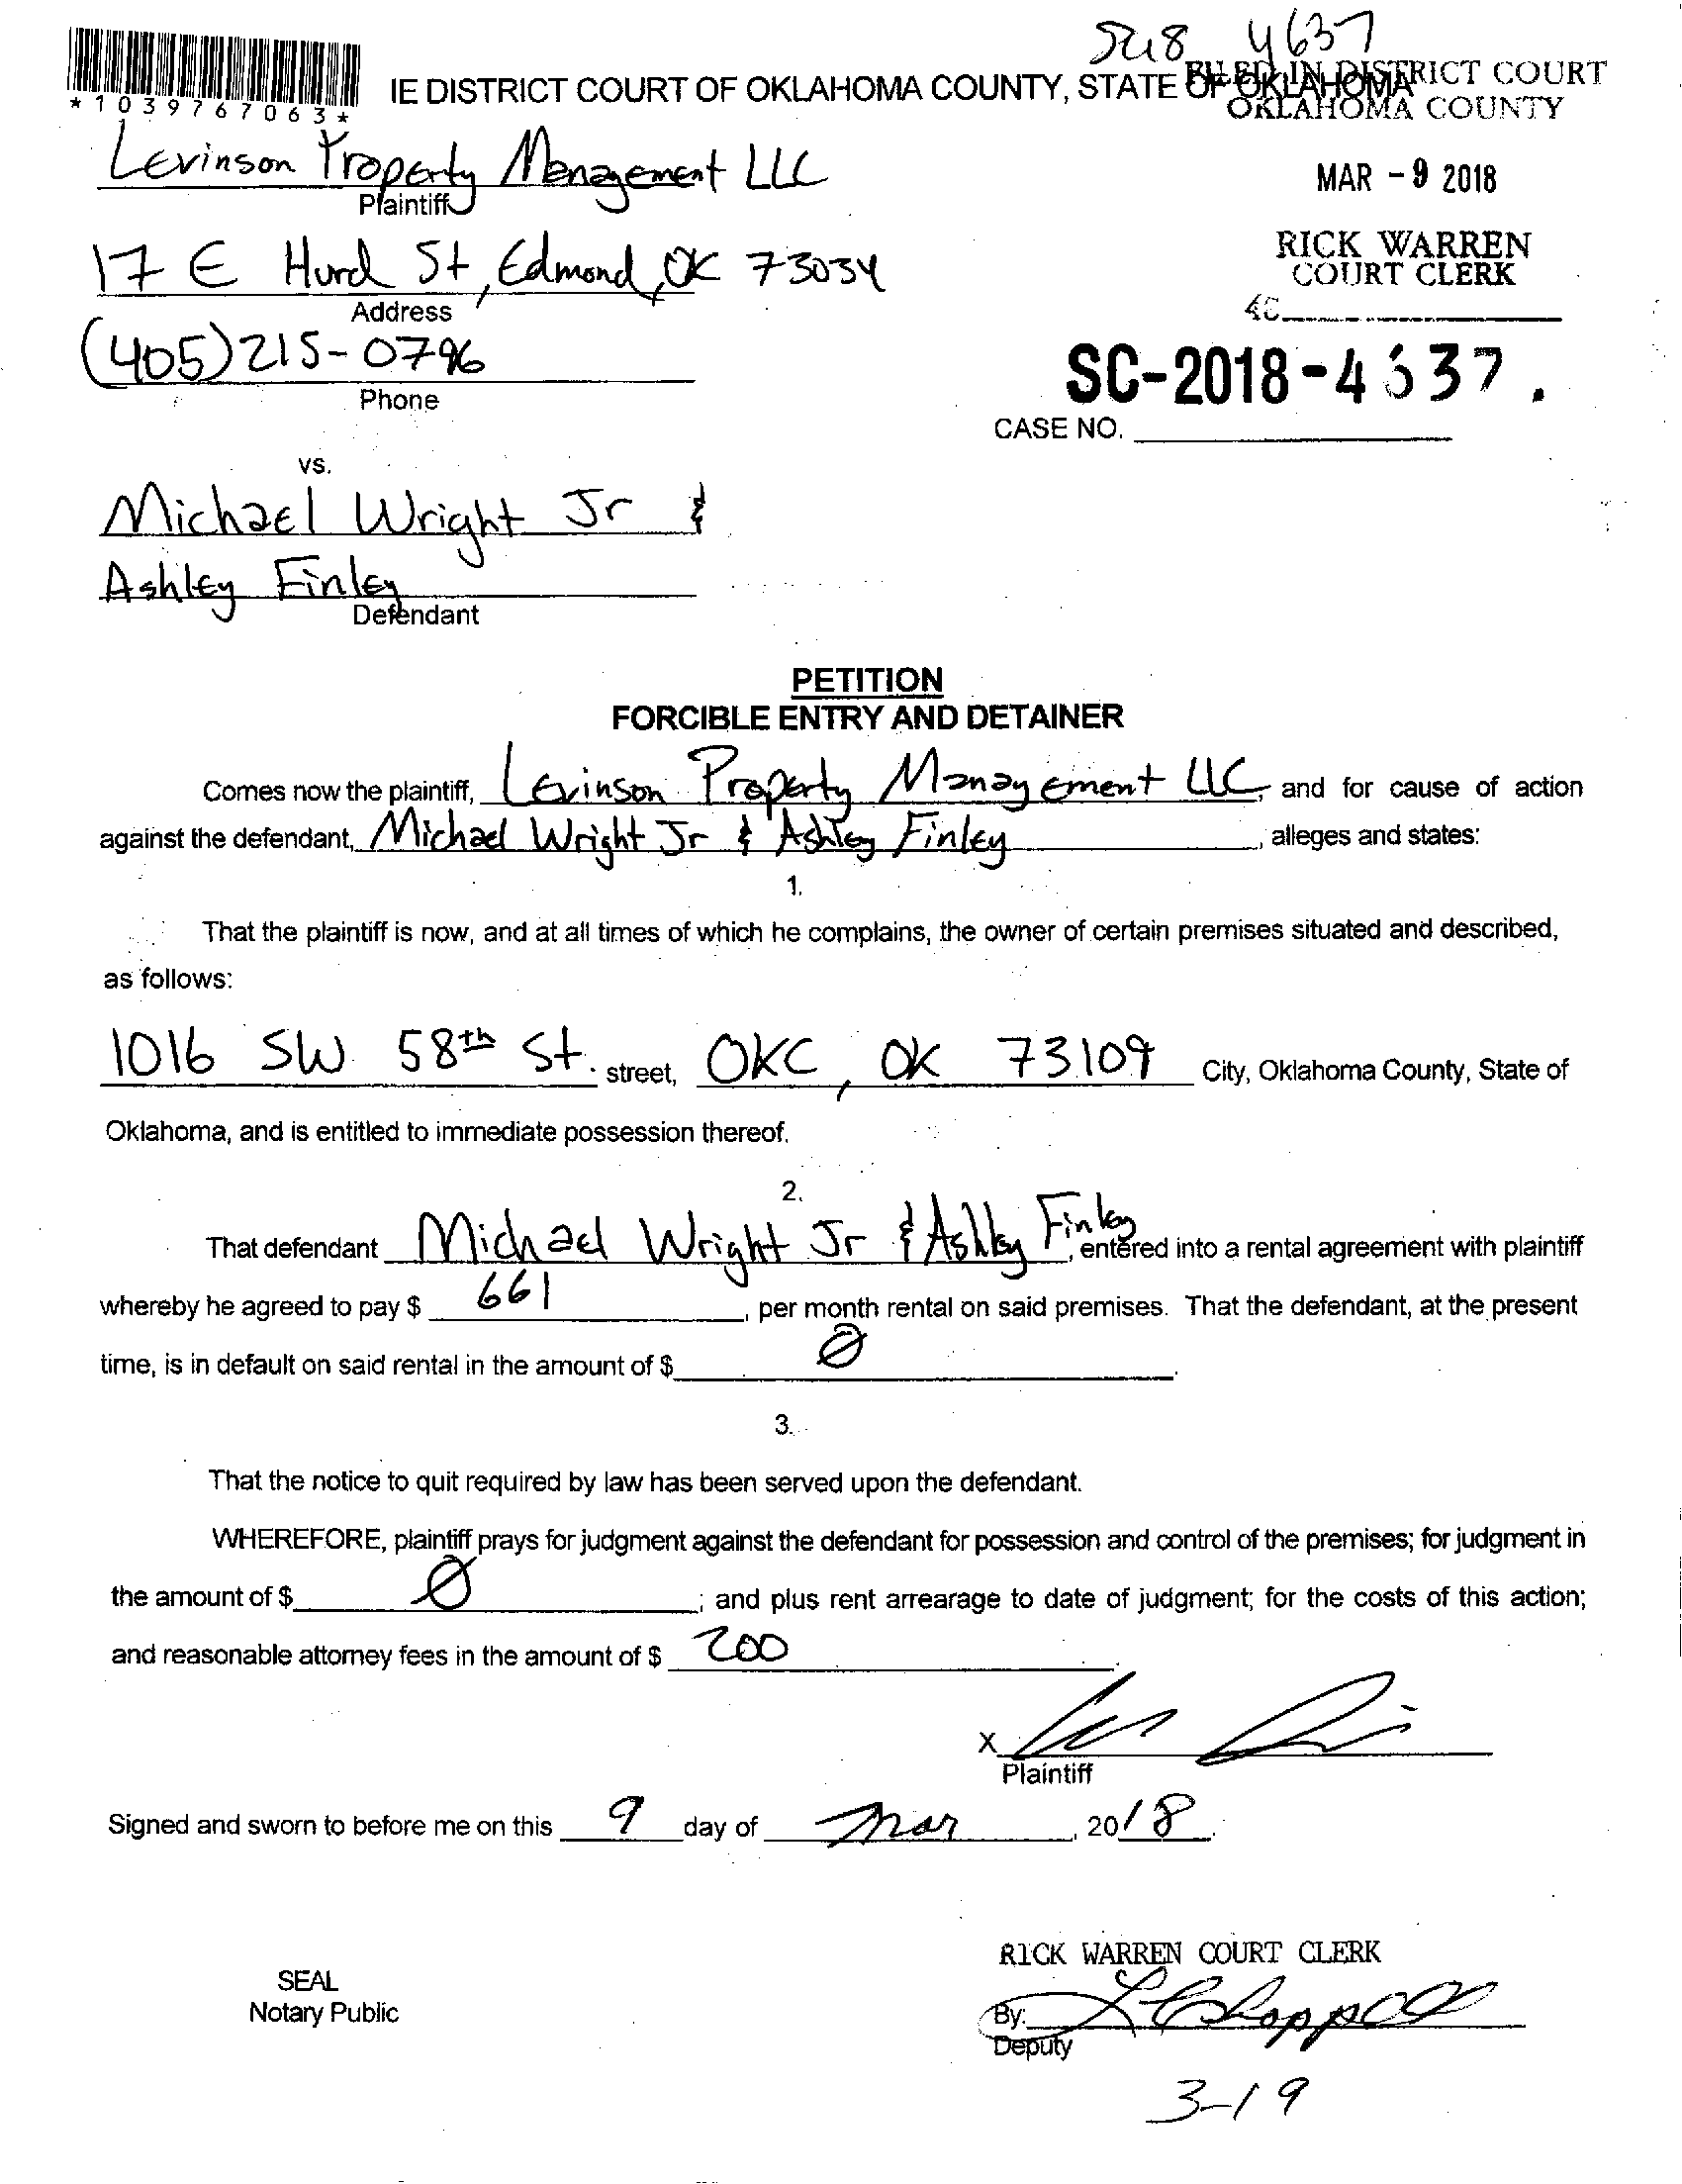 4637
IE DISTRICT COURT OF OKLAHOMA COUNTY, STATE OF OKLAHOMA
FILED IN DISTRICT COURT
OKLAHOMA COUNTY
*1039767063*
Levinson Property Management LLC
Plaintiff
MAR - 9 2018
17 E Hurd St, Edmond, OK 73034
Address
RICK WARREN
COURT CLERK
(405) 215-0796
Phone
SC-2018-4637.
CASE NO.
vs.
Michael Wright Jr &
Ashley Finley
Defendant
PETITION
FORCIBLE ENTRY AND DETAINER
Comes now the plaintiff, Levinson Property Management LLC, and for cause of action
against the defendant, Michael Wright Jr & Ashley Finley, alleges and states:
1.
That the plaintiff is now, and at all times of which he complains, the owner of certain premises situated and described,
as follows:
1016 SW 58th St. street, OKC, OK 73109 City, Oklahoma County, State of
Oklahoma, and is entitled to immediate possession thereof.
2.
That defendant Michael Wright Jr & Ashley Finley, entered into a rental agreement with plaintiff
whereby he agreed to pay $ 661, per month rental on said premises. That the defendant, at the present
time, is in default on said rental in the amount of $ Ø.
3.
That the notice to quit required by law has been served upon the defendant.
WHEREFORE, plaintiff prays for judgment against the defendant for possession and control of the premises; for judgment in
the amount of $ Ø; and plus rent arrearage to date of judgment; for the costs of this action;
and reasonable attorney fees in the amount of $ 200.
X
Plaintiff
Signed and sworn to before me on this 9 day of Mar, 2018.
RICK WARREN COURT CLERK
SEAL
Notary Public
By:
Deputy
3-19